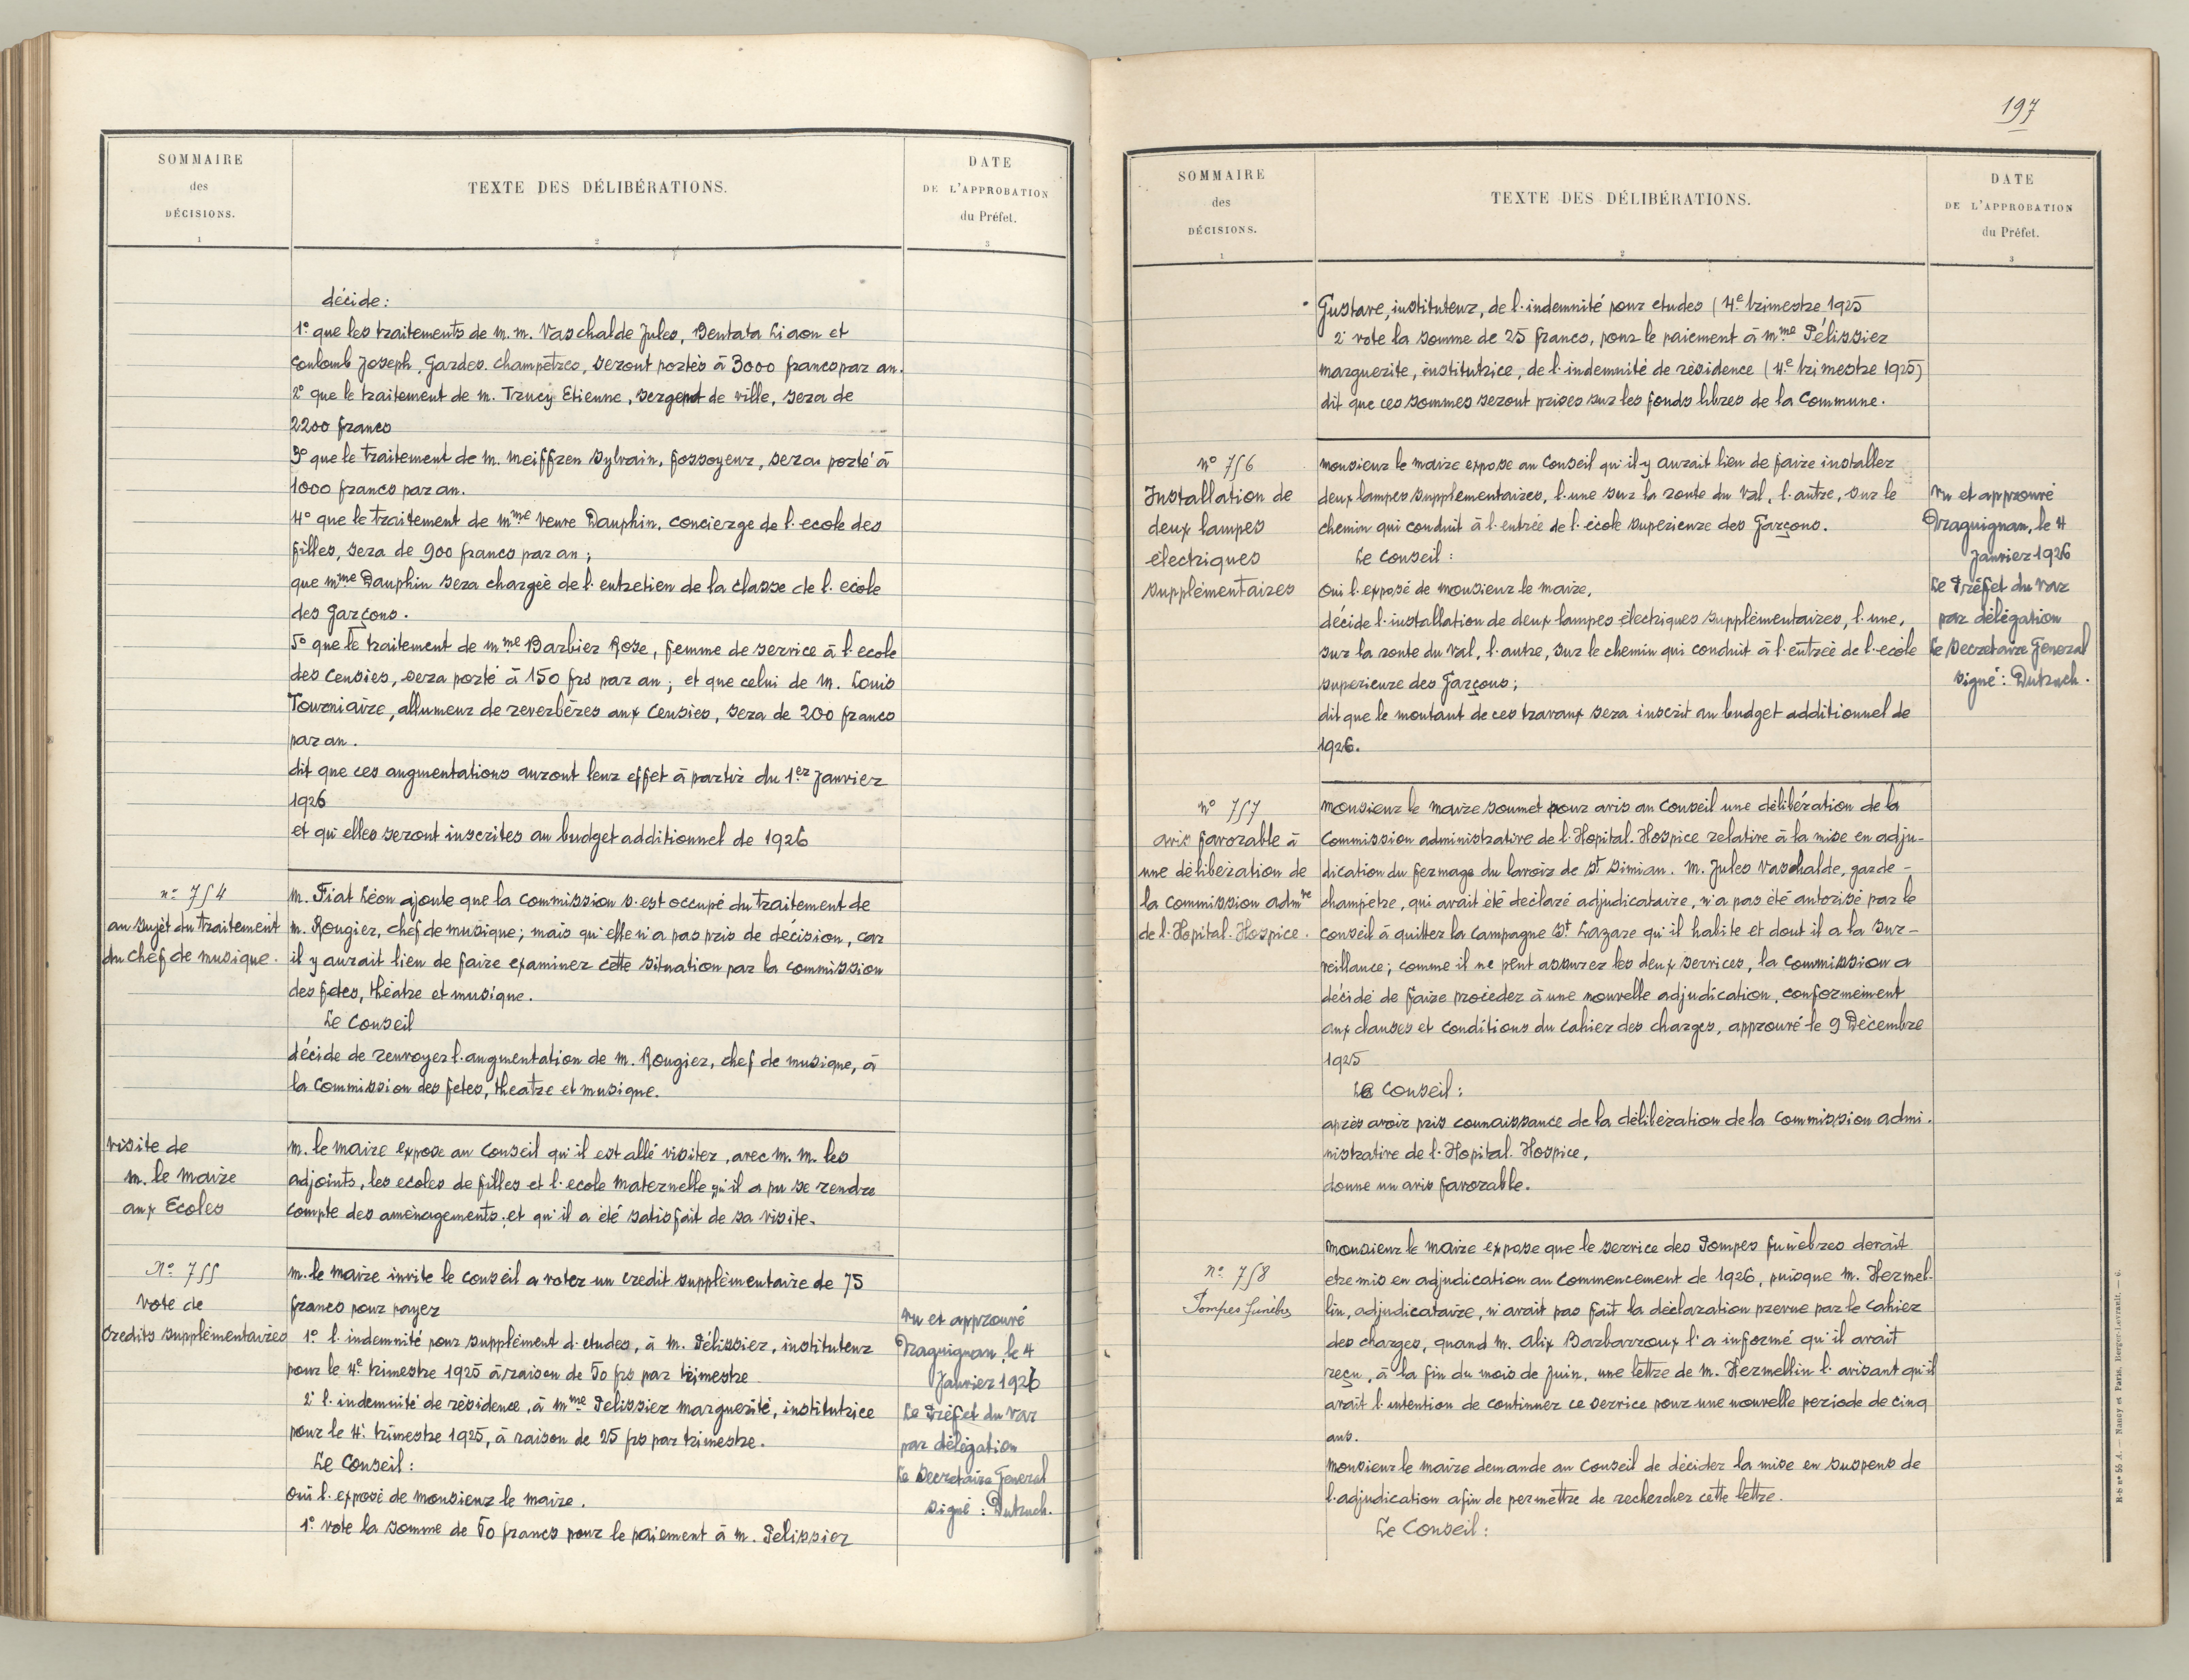 SOMMAIRE
des
DÉCISIONS.
1
TEXTE DES DÉLIBÉRATIONS.
2
DATE
DE L'APPROBATION
du Préfet.
3
décide:
1º que les traitements de M. M. Vaschalde Jules, Bentata Liaon et
Coulomb Joseph, Gardes. Champêtres, seront portés à 3000 francs par an.
2º que le traitement de M. Trucy Etienne, sergent de ville, sera de
2200 francs
3º que le traitement de M. Meiffren Sylvain, fossoyeur, sera porté à
1000 francs par an.
4º que le traitement de Mme Veuve Dauphin, concierge de l'ecole des
filles, sera de 900 francs par an;
que Mme Dauphin sera chargée de l'entretien de la classe de l'ecole
des Garçons.
5º que le traitement de Mme Barbier Rose, femme de service à l'ecole
des Censiés, sera porté à 150 frs par an; et que celui de M. Louis
Tourniaire, allumeur de reverbères aux Censiés, sera de 200 francs
par an.
dit que ces augmentations auront leur effet à partir du 1er Janvier
1926
et qu'elles seront inscrites au budget additionnel de 1926
nº 754
au sujet du traitement
du chef de musique.
M. Fiat Léon ajoute que la Commission s'est occupé du traitement de
M. Rougier, chef de musique; mais qu'elle n'a pas pris de décision, car
il y aurait lieu de faire examiner cette situation par la commission
des fetes, théatre et musique.
Le Conseil
décide de renvoyer l'augmentation de M. Rougier, chef de musique, à
la Commission des fetes, theatre et musique.
visite de
M. le Maire
aux Ecoles
M. le Maire expose au Conseil qu'il est allé visiter, avec M. M. les
adjoints, les ecoles de filles et l'ecole Maternelle qu'il a pu se rendre
compte des aménagements, et qu'il a été satisfait de sa visite.
Nº 755
Vote de
Credits supplémentaires
M. le Maire invite le conseil a voter un credit supplémentaire de 75
francs pour payer
1º l'indemnité pour supplément d'etudes, à M. Pélissier, instituteur
pour le 4e trimestre 1925 à raison de 50 frs par trimestre
2º l'indemnité de résidence, à Mme Pelissier Marguerité, institutrice
pour le 4e trimestre 1925, à raison de 25 frs par trimestre.
Le Conseil:
oui l'exposé de Monsieur le Maire.
1º vote la somme de 50 francs pour le paiement à M. Pelissier
Vu et approuvé
Draguignan, le 4
Janvier 1926
Le Préfet du Var
par délégation
Le Secretaire General
signé: Dutruch.
197
SOMMAIRE
des
DÉCISIONS.
1
TEXTE DES DÉLIBÉRATIONS.
2
DATE
DE L'APPROBATION
du Préfet.
3
Gustave, instituteur, de l'indemnité pour etudes (4e trimestre 1925
2º vote la somme de 25 francs, pour le paiement à Mme Pélissier
Marguerite, institutrice, de l'indemnité de résidence (4e trimestre 1925)
dit que ces sommes seront prises sur les fonds libres de la Commune.
nº 756
Installation de
deux lampes
électriques
supplémentaires
Monsieur le Maire expose au Conseil qu'il y aurait lieu de faire installer
deux lampes supplementaires, l'une sur la route du Val, l'autre, sur le
chemin qui conduit à l'entrée de l'école superieure des Garçons.
Le Conseil:
oui l'exposé de Monsieur le Maire,
décide l'installation de deux lampes électriques supplémentaires, l'une,
sur la route du Val, l'autre, sur le chemin qui conduit à l'entrée de l'ecole
superieure des Garçons;
dit que le montant de ces travaux sera inscrit au budget additionnel de
1926.
Vu et approuvé
Draguignan, le 4
Janvier 1926
Le Préfet du Var
par délégation
Le Secretaire General
signé: Dutruch.
nº 757
avis favorable à
une délibération de
la Commission admve
de l'Hopital-Hospice.
Monsieur le Maire soumet pour avis au Conseil une délibération de la
Commission administrative de l'Hopital-Hospice relative à la mise en adju-
dication du fermage du lavoir de St Simian. M. Jules Vaschalde, garde-
champêtre, qui avait été déclaré adjudicataire, n'a pas été autorisé par le
Conseil à quitter la campagne St Lazare qu'il habite et dont il a la sur-
veillance; comme il ne peut assurer les deux services, la Commission a
décidé de faire procéder à une nouvelle adjudication, conformement
aux clauses et conditions du Cahier des charges, approuvé le 9 Décembre
1925
Le Conseil:
après avoir pris connaissance de la délibération de la Commission admi-
nistrative de l'Hopital-Hospice,
donne un avis favorable.
nº 758
Pompes funèbres
Monsieur le Maire expose que le service des Pompes funèbres devait
etre mis en adjudication au commencement de 1926, puisque M. Hermel-
lin, adjudicataire, n'avait pas fait la déclaration prevue par le Cahier
des charges, quand M. Alix Barbarroux l'a informé qu'il avait
reçu, à la fin du mois de Juin, une lettre de M. Hermellin l'avisant qu'il
avait l'intention de continuer ce service pour une nouvelle periode de cinq
ans.
Monsieur le Maire demande au Conseil de décider la mise en suspens de
l'adjudication afin de permettre de rechercher cette lettre.
Le Conseil:
Nancy et Paris, Berger-Levrault. — 6.